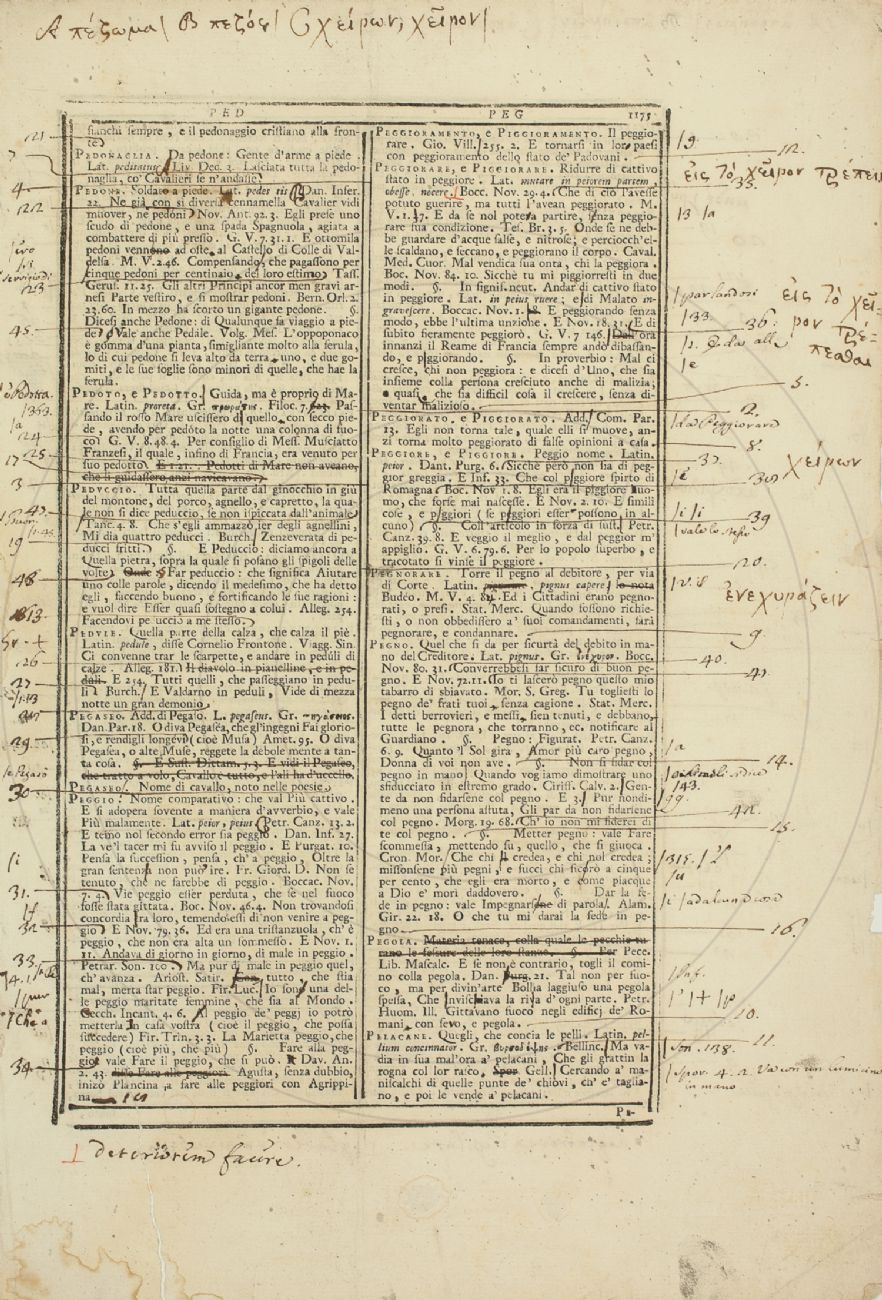 Α πέζωμα| Β πεζός| C χείρων, χεῖρον|
PED
PEG
1175
fianchi sempre, e il pedonaggio cristiano alla fron-
te
PEDONAGLIA. Da pedone: Gente d'arme a piede.
Lat. peditatus. Liv. Dec. 3. Lasciata tutta la pedo-
naglia, co' Cavalieri se n'andasse
PEDONE. Soldato a piede. Lat. pedes itis Dan. Infer.
22. Ne già con si diversa cennamella Cavalier vidi
muover, nè pedoni Nov. Ant. 92. 3. Egli prese uno
scudo di pedone, e una spada Spagnuola, agiata a
combattere di più presso. G. V. 7. 31. 1. E ottomila
pedoni vennono ad oste al Castello di Colle di Val-
delsa. M. V. 2. 46. Compensando, che pagassono per
cinque pedoni per centinaio del loro estimo Tass.
Gerus. 11. 25. Gli altri Principi ancor men gravi ar-
nesi Parte vestiro, e si mostrar pedoni. Bern. Orl. 2.
23. 60. In mezzo ha scorto un gigante pedone. §.
Dicesi anche Pedone: di Qualunque fa viaggio a pie-
de Vale anche Pedale. Volg. Mes. L'oppoponaco
è gomma d'una pianta, simigliante molto alla ferula,
lo di cui pedone si leva alto da terra uno, e due go-
miti, e le sue foglie sono minori di quelle, che hae la
ferula.
PEDOTO, E PEDOTTO. Guida, ma è proprio di Ma-
re. Latin. proreta. Gr. πρωράτης. Filoc. 7. Pas-
sando il rosso Mare uscissero di quello con secco pie-
de, avendo per pedóto la notte una colonna di fuo-
co G. V. 8. 48. 4. Per consiglio di Mess. Musciatto
Franzesi, il quale, infino di Francia, era venuto per
suo pedotto E 1. 21. Pedotti di Mare non aveano,
che li guidassero, anzi navicavano
PEDUCCIO. Tutta quella parte dal ginocchio in giù
del montone, del porco, agnello, e capretto, la qua-
le non si dice peduccio, se non ispiccata dall'animale
Tanc. 4. 8. Che s'egli ammazzò ier degli agnellini,
Mi dia quattro peducci. Burch. Zenzeverata di pe-
ducci fritti. §. E Peduccio: diciamo ancora a
Quella pietra, sopra la quale si posano gli spigoli delle
volte Onde Far peduccio: che significa Aiutare
uno colle parole, dicendo il medesimo, che ha detto
egli, faccendo buono, e fortificando le sue ragioni:
e vuol dire Esser quasi sostegno a colui. Alleg. 254.
Facendovi peduccio a me stesso.
PEDULE. Quella parte della calza, che calza il piè.
Latin. pedule, disse Cornelio Frontone. Viagg. Sin.
Ci convenne trar le scarpette, e andare in peduli di
calze. Alleg. 181. Il diavolo in pianelline, e in pe-
duli. E 254. Tutti quelli, che passeggiano in pedu-
li Burch. E Valdarno in peduli, Vide di mezza
notte un gran demonio.
PEGASEO. Add. di Pegaso. L. pegaseus. Gr. πηγάσειος.
Dan. Par. 18. O diva Pegasea, che gl'ingegni Fai glorio-
si, e rendigli longevi (cioè Musa) Amet. 95. O diva
Pegasea, o alte Muse, reggete la debole mente a tan-
ta cosa. §. E Sust. Dittam. 5. 3. E vidi il Pegaseo,
che tratto a volo, Cavallo è tutto, e l'ali ha d'uccello.
PEGASEO. Nome di cavallo, noto nelle poesie
PEGGIO. Nome comparativo: che val Più cattivo.
E si adopera sovente a maniera d'avverbio, e vale
Più malamente. Lat. peior, peius Petr. Canz. 13. 2.
E temo nol secondo error sia peggio. Dan. Inf. 27.
La ve'l tacer mi fu avviso il peggio. E Purgat. 10.
Pensa la succession, pensa, ch'a peggio, Oltre la
gran sentenza non può ire. Fr. Giord. D. Non se
tenuto, che ne sarebbe di peggio. Boccac. Nov.
7. 4. Vie peggio esser perduta, che se nel fuoco
fosse stata gittata. Boc. Nov. 46. 4. Non trovandosi
concordia fra loro, temendo essi di non venire a peg-
gio E Nov. 79. 36. Ed era una tristanzuola, ch'è
peggio, che non era alta un sommesso. E Nov. 1.
11. Andava di giorno in giorno, di male in peggio.
Petrar. Son. 100. Ma pur di male in peggio quel,
ch'avanza. Ariost. Satir. Fen, tutto, che stia
mal, merta star peggio. Fir. Luc. Io sono una del-
le peggio maritate femmine, che sia al Mondo.
Cecch. Incant. 4. 6. Al peggio de' peggj io potrò
metterla in casa vostra (cioè il peggio, che possa
succedere) Fir. Trin. 3. 3. La Marietta peggio, che
peggio (cioè più, che più) §. Fare alla peg-
gio: vale Fare il peggio, che si può. R Dav. An.
2. 43. disse Fare alle peggiori. Agusta, senza dubbio,
inizò Plancina a fare alle peggiori con Agrippi-
na
PEGGIORAMENTO, e PIGGIORAMENTO. Il peggio-
rare. Gio. Vill. 255. 2. E tornarsi in loro paesi
con peggioramento dello stato de' Padovani.
PEGGIORARE, e PIGGIORARE. Ridurre di cattivo
stato in peggiore. Lat. mutare in peiorem partem,
obesse. nocere. Bocc. Nov. 29. 4. Che di ciò l'avesse
potuto guerire, ma tutti l'avean peggiorato. M.
V. 1. 17. E da se nol potera partire, senza peggio-
rare sua condizione. Tes. Br. 3. 5. Onde se ne deb-
be guardare d'acque salse, e nitrose; e perciocch'el-
le scaldano, e seccano, e peggiorano il corpo. Caval.
Med. Cuor. Mal vendica sua onta, chi la peggiora.
Boc. Nov. 84. 10. Sicchè tu mi piggiorresti in due
modi. §. In signif. neut. Andar di cattivo stato
in peggiore. Lat. in peius ruere; e di Malato in-
gravescere. Boccac. Nov. 1. 18. E peggiorando senza
modo, ebbe l'ultima unzione. E Nov. 18. 31. E di
subito fieramente peggiorò. G. V. 7 146. Dall'ora
innanzi il Reame di Francia sempre andò dibassan-
do, e piggiorando. §. In proverbio: Mal ci
cresce, chi non peggiora: e dicesi d'Uno, che sia
insieme colla persona cresciuto anche di malizia;
e quasi, che sia difficil cosa il crescere, senza di-
ventar malizioso.
PEGGIORATO, e PIGGIORATO. Add. Com. Par.
13. Egli non torna tale, quale elli si muove, an-
zi torna molto peggiorato di false opinioni a casa.
PEGGIORE, e PIGGIORE. Peggio nome. Latin.
peior. Dant. Purg. 6. Sicchè però non ha di peg-
gior greggia. E Inf. 33. Che col piggiore spirto di
Romagna Boc. Nov 1. 8. Egli era il piggiore huo-
mo, che forse mai nascesse. E Nov. 2. 10. E simili
cose, e piggiori (se piggiori esser possono, in al-
cuno) §. Coll'articolo in forza di sust. Petr.
Canz. 39. 8. E veggio il meglio, e dal peggior m'
appiglio. G. V. 6. 79. 6. Per lo popolo superbo, e
tracotato si vinse il peggiore.
PEGNORARE. Torre il pegno al debitore, per via
di Corte. Latin. pignorare, pignus capere lo nota
Budéo. M. V. 4. 82. Ed i Cittadini erano pegno-
rati, o presi. Stat. Merc. Quando fossono richie-
sti, o non obbedissero a' suoi comandamenti, farà
pegnorare, e condannare.
PEGNO. Quel che si da per sicurtà del debito in ma-
no del Creditore. Lat. pignus. Gr. ἐνέχυρον. Bocc.
Nov. 80. 31. Converrebbeti far sicuro di buon pe-
gno. E Nov. 72. 11. Io ti lascerò pegno questo mio
tabarro di sbiavato. Mor. S. Greg. Tu togliesti lo
pegno de' frati tuoi senza cagione. Stat. Merc.
I detti berrovieri, e messi, sien tenuti, e debbano,
tutte le pegnora, che torranno, ec. notificare al
Guardiano. §. Pegno: Figurat. Petr. Canz.
6. 9. Quanto 'l Sol gira, Amor più caro pegno,
Donna di voi non ave. §. Non si fidar col
pegno in mano: Quando vogliamo dimostrare uno
sfiducciato in estremo grado. Ciriff. Calv. 2. Gen-
te da non fidarsene col pegno. E 3. Pur nondi-
meno una persona astuta, Gli par da non fidarsene
col pegno. Morg. 19. 68. Ch' io non mi fiderei di
te col pegno. §. Metter pegno: vale Fare
scommessa, mettendo su, quello, che si giuoca.
Cron. Mor. Che chi 'l credea, e chi nol credea;
missonsene più pegni, e fucci chi sicurò a cinque
per cento, che egli era morto, e come piacque
a Dio e' morì daddovero. §. Dar la fe-
de in pegno: vale Impegnarsene di parola. Alam.
Gir. 22. 18. O che tu mi darai la fede in pe-
gno
PEGOLA. Materia tenace, colla quale le pecchie tu-
rano le fessure delle loro stanze. §. Per Pece.
Lib. Mascalc. E se non è contrario, togli il comi-
no colla pegola. Dan. Purg. 21. Tal non per fuo-
co, ma per divin'arte Bollia laggiuso una pegola
spessa, Che invischiava la riva d'ogni parte. Petr.
Huom. Ill. Gittavano fuoco negli edificj de' Ro-
mani con sevo, e pegola.
PELACANE. Quegli, che concia le pelli. Latin. pel-
lium concinnator. Gr. βυρσοδέψης. Bellinc. Ma va-
dia in sua mal'ora a' pelacani, Che gli grattin la
rogna col lor rasco. Spor. Gell. Cercando a' ma-
niscalchi di quelle punte de' chiovi, ch' e' taglia-
no, e poi le vende a' pelacani.
Pe-
21
4
122
123
45
124
17
25
3
19
48
26
29
30
31
32
33
34
12
εἰς τὸ χεῖρον τρέπειν
35
|parlandosi
36
εἰς τὸ χεῖ-
ρον τρέ-
πεσθαι
5
2
|da Peggiorare
8
30
χείρων
39
20
ἐνεχυράζειν
9
40
41
14
42
15
16
|Inf.
10
11
|Son. 138.
|Spor. 4. 2. Va con un cencino in mano
⊥ deteriorem facere.